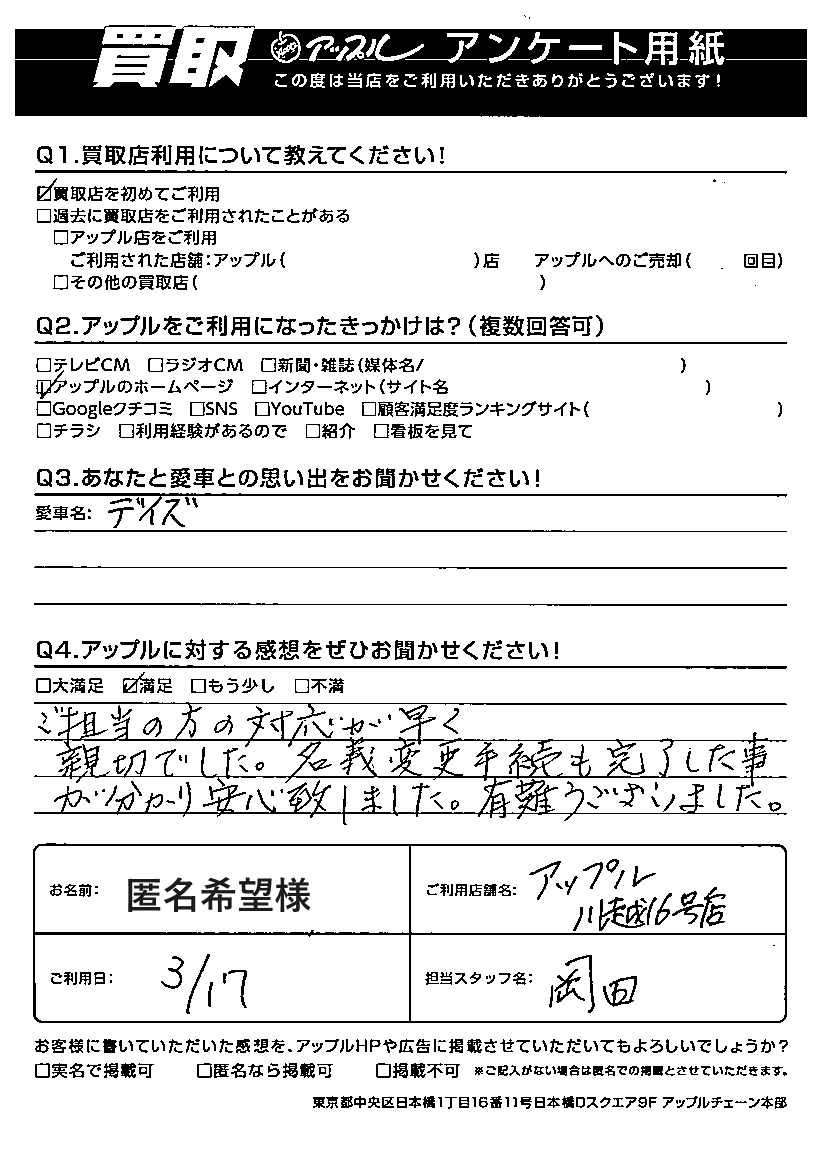 買取 アップル アンケート用紙
この度は当店をご利用いただきありがとうございます!
Q1.買取店利用について教えてください!
☑買取店を初めてご利用
□過去に買取店をご利用されたことがある
□アップル店をご利用
ご利用された店舗:アップル( )店 アップルへのご売却( 回目)
□その他の買取店( )
Q2.アップルをご利用になったきっかけは?(複数回答可)
□テレビCM □ラジオCM □新聞・雑誌(媒体名/ )
☑アップルのホームページ □インターネット(サイト名 )
□Googleクチコミ □SNS □YouTube □顧客満足度ランキングサイト( )
□チラシ □利用経験があるので □紹介 □看板を見て
Q3.あなたと愛車との思い出をお聞かせください!
愛車名: デイズ
Q4.アップルに対する感想をぜひお聞かせください!
□大満足 ☑満足 □もう少し □不満
ご担当の方の対応が早く
親切でした。名義変更手続も完了した事
が分かり安心致しました。有難うございました。
お名前: 匿名希望様
ご利用店舗名: アップル
川越16号店
ご利用日: 3/17
担当スタッフ名: 岡田
お客様に書いていただいた感想を、アップルHPや広告に掲載させていただいてもよろしいでしょうか?
□実名で掲載可 □匿名なら掲載可 □掲載不可 ※ご記入がない場合は匿名での掲載とさせていただきます。
東京都中央区日本橋1丁目16番11号日本橋Dスクエア9F アップルチェーン本部